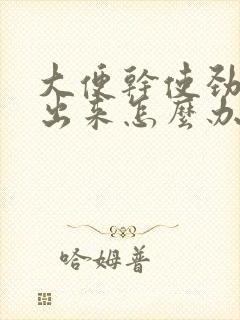 大便幹使勁
出來怎麼办
哈姆普